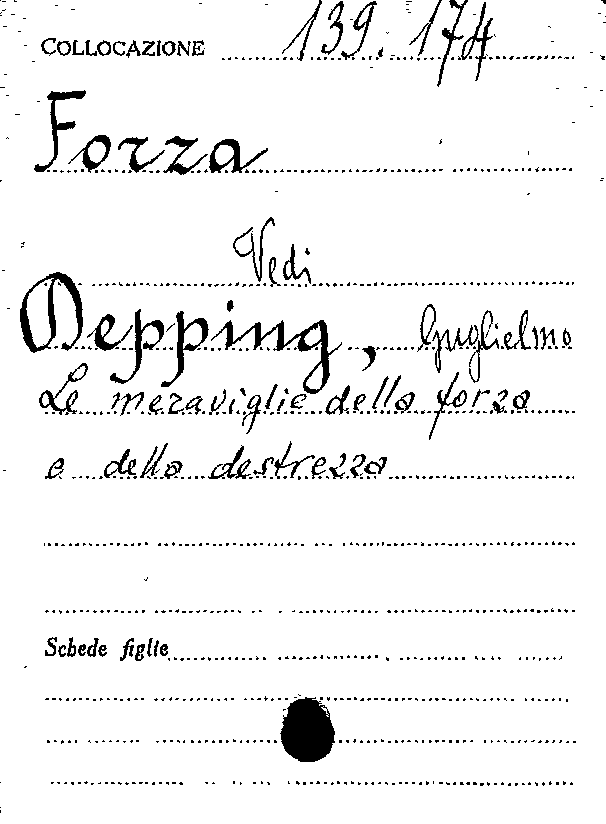 COLLOCAZIONE 139.174
Forza
Vedi
Depping, Guglielmo
Le meraviglie della forza
e della destrezza
Schede figlie